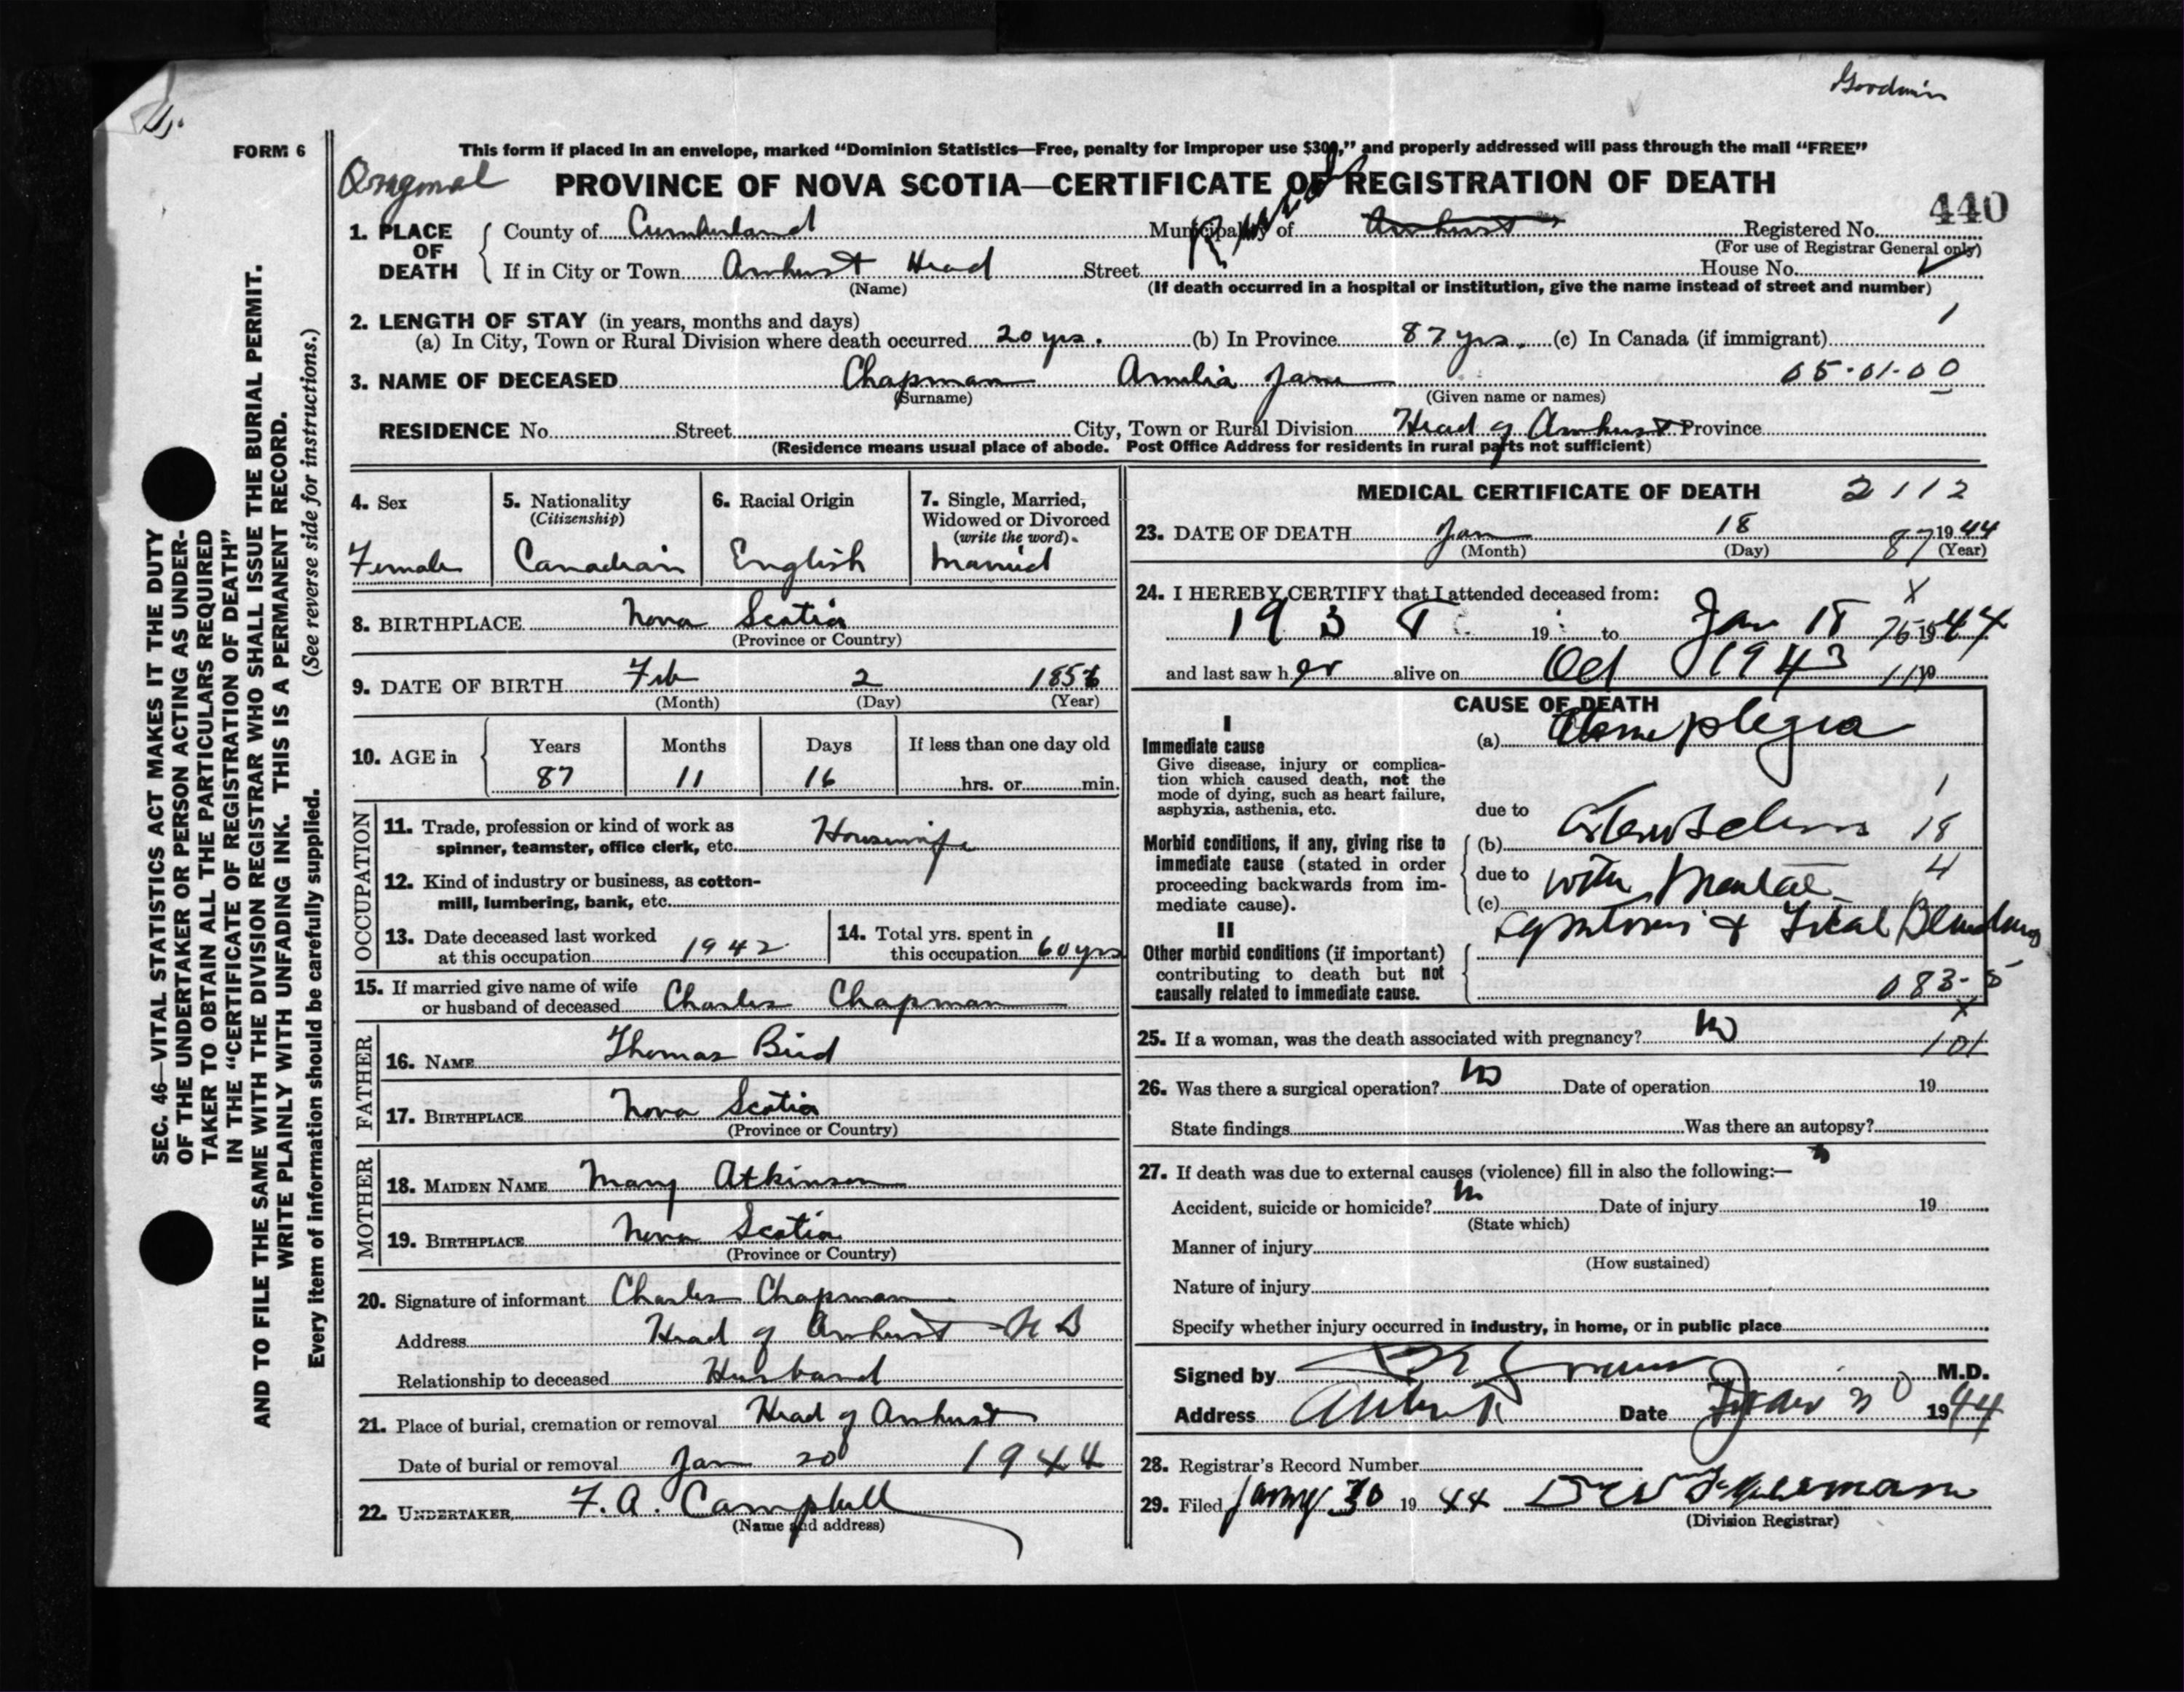 Goodwin
FORM 6
This form if placed in an envelope, marked “Dominion Statistics—Free, penalty for improper use $300,” and properly addressed will pass through the mail “FREE”
Original PROVINCE OF NOVA SCOTIA—CERTIFICATE OF REGISTRATION OF DEATH
440
1. PLACE OF DEATH
County of Cumberland Municipality of Amherst Rural Registered No.
(For use of Registrar General only)
If in City or Town Amherst Head Street House No.
(Name) (If death occurred in a hospital or institution, give the name instead of street and number)
2. LENGTH OF STAY (in years, months and days) 1
(a) In City, Town or Rural Division where death occurred 20 yrs. (b) In Province 87 yrs. (c) In Canada (if immigrant)
3. NAME OF DECEASED Chapman Amelia Jane 05-01-00
(Surname) (Given name or names)
RESIDENCE No. Street City, Town or Rural Division Head of Amherst Province
(Residence means usual place of abode. Post Office Address for residents in rural parts not sufficient)
4. Sex
Female
5. Nationality
(Citizenship)
Canadian
6. Racial Origin
English
7. Single, Married,
Widowed or Divorced
(write the word)
Married
8. BIRTHPLACE Nova Scotia
(Province or Country)
9. DATE OF BIRTH Feb 2 185
(Month) (Day) (Year)
10. AGE in
Years Months Days If less than one day old
87 11 16 hrs. or min.
OCCUPATION
11. Trade, profession or kind of work as
spinner, teamster, office clerk, etc. Housewife
12. Kind of industry or business, as cotton-
mill, lumbering, bank, etc.
13. Date deceased last worked
at this occupation 1942
14. Total yrs. spent in
this occupation 60 yrs
15. If married give name of wife
or husband of deceased Charles Chapman
FATHER
16. NAME Thomas Bird
17. BIRTHPLACE Nova Scotia
(Province or Country)
MOTHER
18. MAIDEN NAME Mary Atkinson
19. BIRTHPLACE Nova Scotia
(Province or Country)
20. Signature of informant Charles Chapman
Address Head of Amherst N S
Relationship to deceased Husband
21. Place of burial, cremation or removal Head of Amherst
Date of burial or removal Jan 20 1944
22. UNDERTAKER F. A. Campbell
(Name and address)
MEDICAL CERTIFICATE OF DEATH 2112
23. DATE OF DEATH Jan 18 1944
(Month) (Day) 87 (Year)
24. I HEREBY CERTIFY that I attended deceased from: x
1938 19 to Jan 18 75 1944
and last saw her alive on Oct 1943 11 19
CAUSE OF DEATH
I
Immediate cause
Give disease, injury or complica-
tion which caused death, not the
mode of dying, such as heart failure,
asphyxia, asthenia, etc.
(a) Hemiplegia
due to 1
Morbid conditions, if any, giving rise to
immediate cause (stated in order
proceeding backwards from im-
mediate cause).
(b) 18
due to with Mental 4
(c) symptoms &
II
Other morbid conditions (if important)
contributing to death but not
causally related to immediate cause.
083-
x
25. If a woman, was the death associated with pregnancy? No 101
26. Was there a surgical operation? No Date of operation 19
State findings Was there an autopsy?
27. If death was due to external causes (violence) fill in also the following:—
Accident, suicide or homicide? No Date of injury 19
(State which)
Manner of injury
(How sustained)
Nature of injury
Specify whether injury occurred in industry, in home, or in public place
Signed by M.D.
Address Amherst Date 1944
28. Registrar's Record Number
29. Filed 30 1944
(Division Registrar)
SEC. 46—VITAL STATISTICS ACT MAKES IT THE DUTY
OF THE UNDERTAKER OR PERSON ACTING AS UNDER-
TAKER TO OBTAIN ALL THE PARTICULARS REQUIRED
IN THE “CERTIFICATE OF REGISTRATION OF DEATH”
AND TO FILE THE SAME WITH THE DIVISION REGISTRAR WHO SHALL ISSUE THE BURIAL PERMIT.
WRITE PLAINLY WITH UNFADING INK. THIS IS A PERMANENT RECORD.
Every item of information should be carefully supplied. (See reverse side for instructions.)